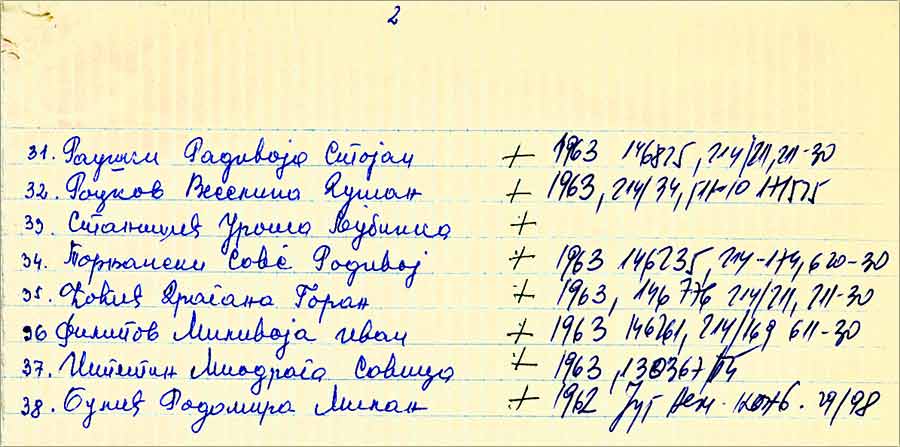 2
31. Радивоја Стојан + 1963 146825, 214/211, 211-30
32. Веселина Душан + 1963, 214/34,
33. Уроша Љубинка +
34. Торњански Саве Радивој + 1963 146235, 214-174, 620-30
35. Драгана Горан + 1963, 146776 214/211, 211-30
36 Филипов Миливоја Иван + 1963 146261, 214/169 611-30
37. Миодрага Савица + 1963, 138367
38. Радомира Милан + 1962 29/98